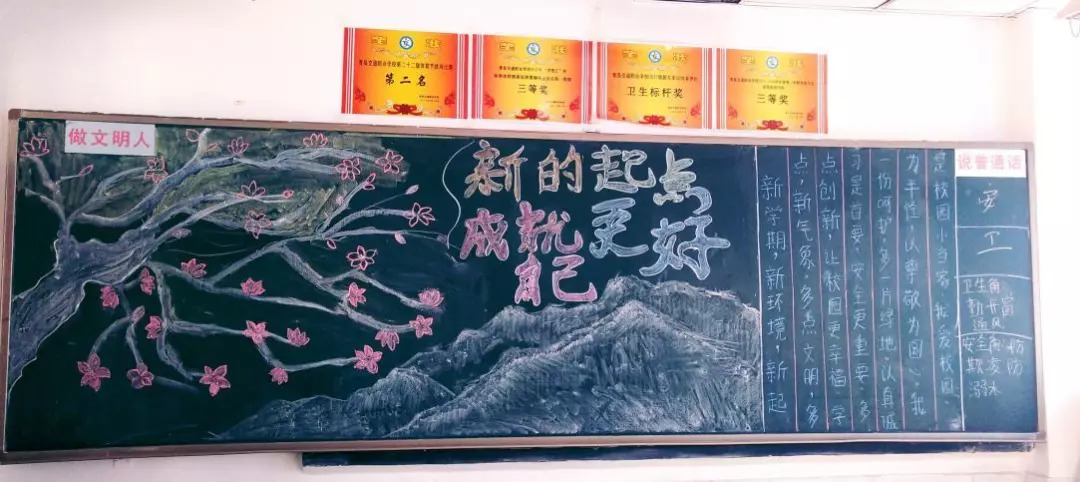 第二名
三等奖
卫生标杆奖
三等奖
做文明人
新的起点
成就更好
自己
新学期，新环境，新起
点，新气象，多点文明，多
点创新，让校园更幸福，学
习是首要，安全更重要，多
一份呵护，多一片绿地，以真诚
为半径，以奉敬为圆心，我
是校园小当家，我爱校园。
说普通话
安
卫生角
勤开窗
通风
溺水